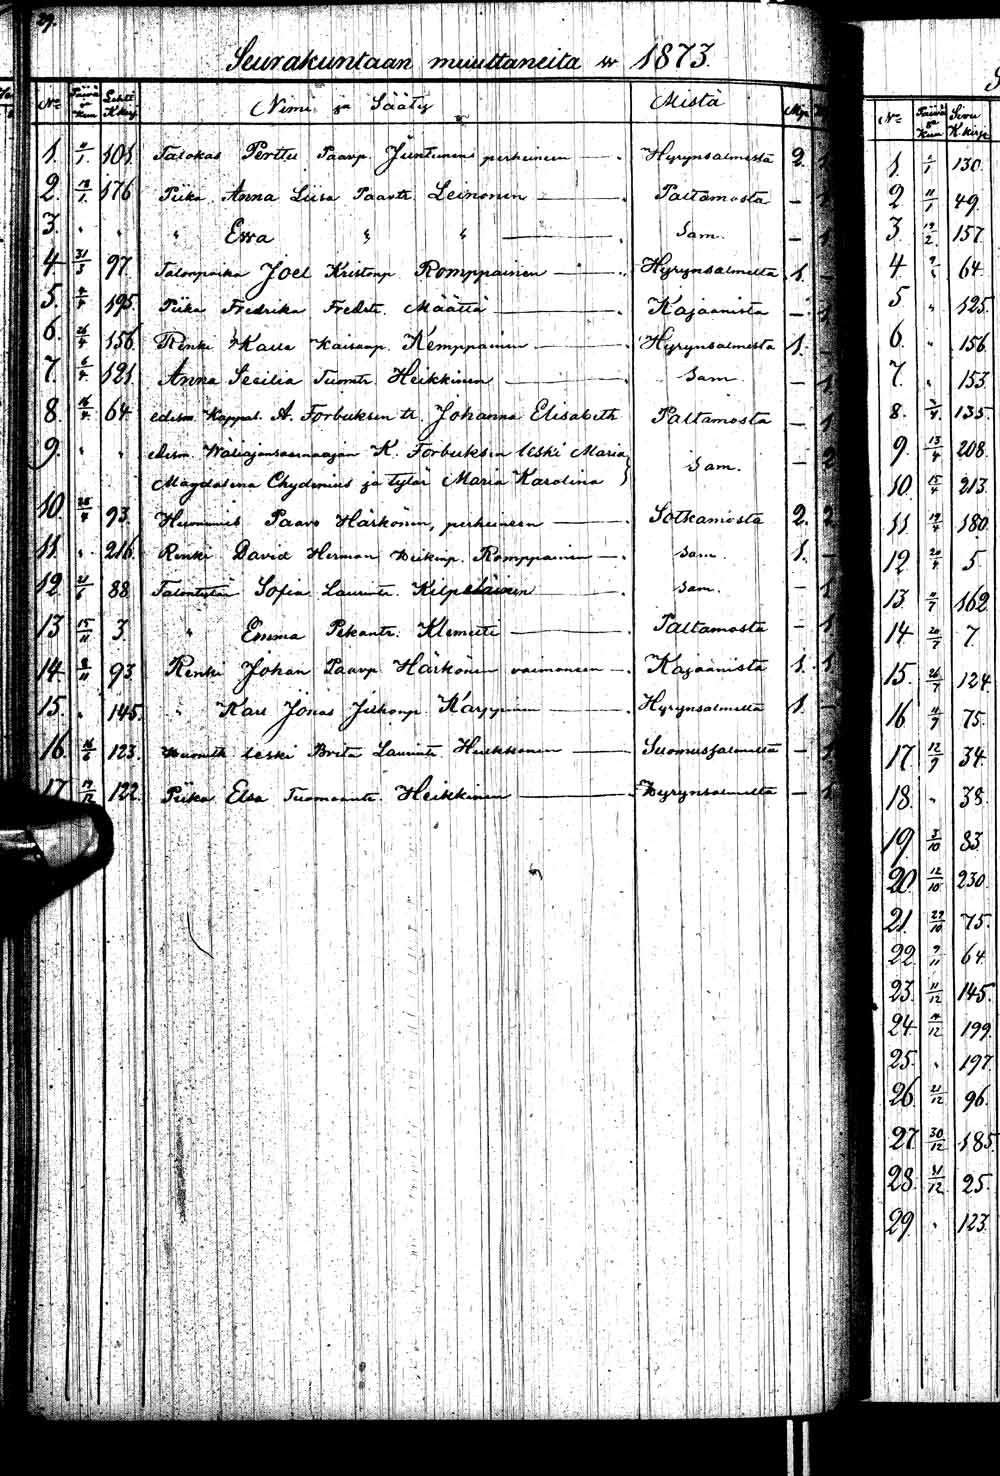 29.
Seurakuntaan muuttaneita w 1873.
No Päivä ja Kuu Lehti K.kirj. Nimi ja Sääty Mistä Mp.
1. 101. Talokas Perttu Paavp. Juntunens perheineen — Hyrynsalmesta 2. 1
2. 176 Piika Anna Liisa Paavtr. Leinonen — Paltamosta — 1
3. " " " Ewa " " — Sam. — 1
4. 31/3 97. Talonpoika Joel Kristianp. Romppainen — Hyrynsalmelta 1. —
5. 195. Piika Fredrika Fredrtr. Määttä — Kajaanista — 1
6. 26/4 156. Renki Kalle Kaisanp. Kemppainen — Hyrynsalmesta 1. —
7. 121. Anna Secilia Tuomtr. Heikkinen — Sam. — 1
8. 16/4 64. edism. Kappal. A. Forbuksen tr. Johanna Elisabeth Paltamosta — 1
9. " " edism. Wäliajansaarnaajan K. Forbuksen leski Maria
Magdalena Chydenius ja tytär Maria Karolina } Sam. — 2
10. 28/4 93. Paavo Härkönen, perheineen — Sotkamosta 2. 2
11. " 216. Renki David Herman Heikinp. Romppainen — Sam. 1. —
12. 21/6 88. Talontytär Sofia Lauritr. Kilpeläinen Sam. — 1
13 15/11 3. " Emma Pekantr. Klemetti — Paltamosta — 1
14. 93. Renki Johan Paavp. Härkönen vaimoneen — Kajaanista 1. 1
15. " 145. " Karl Jonas Karppinen — Hyrynsalmelta 1. —
16. 123. leski Brita Lauritr. — Suomussalmelta — 1
17. 122. Piika Elsa Tuomaantr. Heikkinen — Hyrynsalmelta — 1
No Päivä ja Kuu Sivu K.kirja
1. 130.
2 49.
3. 157.
4. 64.
5 " 125.
6. " 156.
7. " 153.
8. 135.
9. 13/4 208.
10. 15/4 213.
11 19/4 180.
12 20/4 5.
13. 11/7 162
14 20/7 7.
15. 26/7 124.
16 11/9 75.
17. 12/9 34.
18. " 38.
19. 3/10 83.
20. 12/10 230.
21. 29/10 75.
22. 9/11 64.
23. 11/12 145.
24. 14/12 199.
25. " 197.
26. 21/12 96.
27. 30/12 185.
28. 31/12 25.
29. " 123.